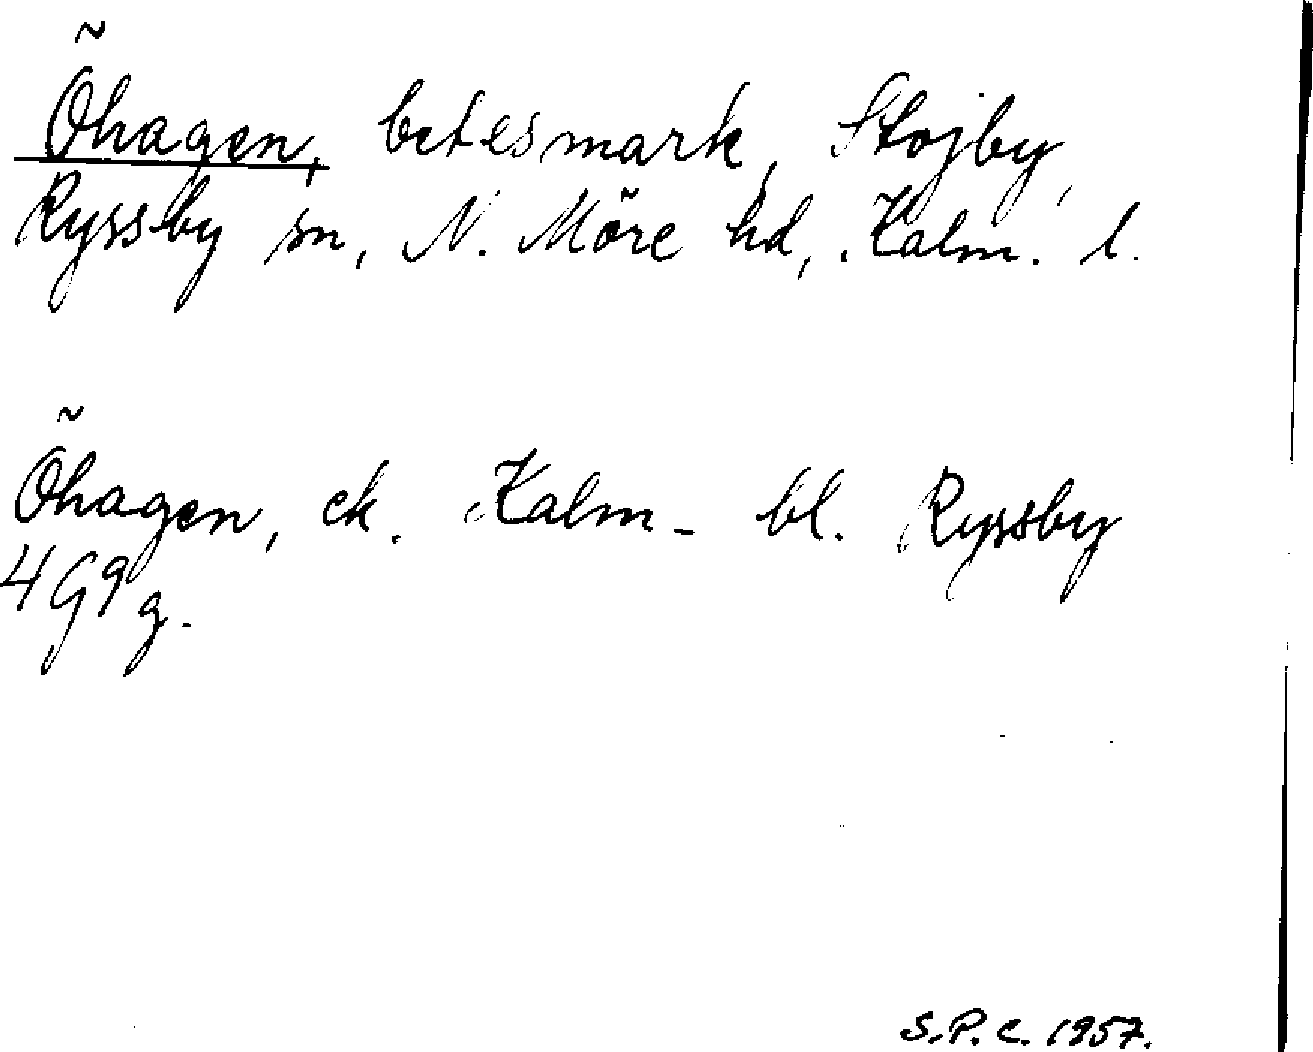 Öhagen, betesmark, Stojby,
Ryssby sn, N. Möre hd, Kalm. l.
Öhagen, ek. Kalm- bl. Ryssby
4G9g.
S.P.C. 1957.